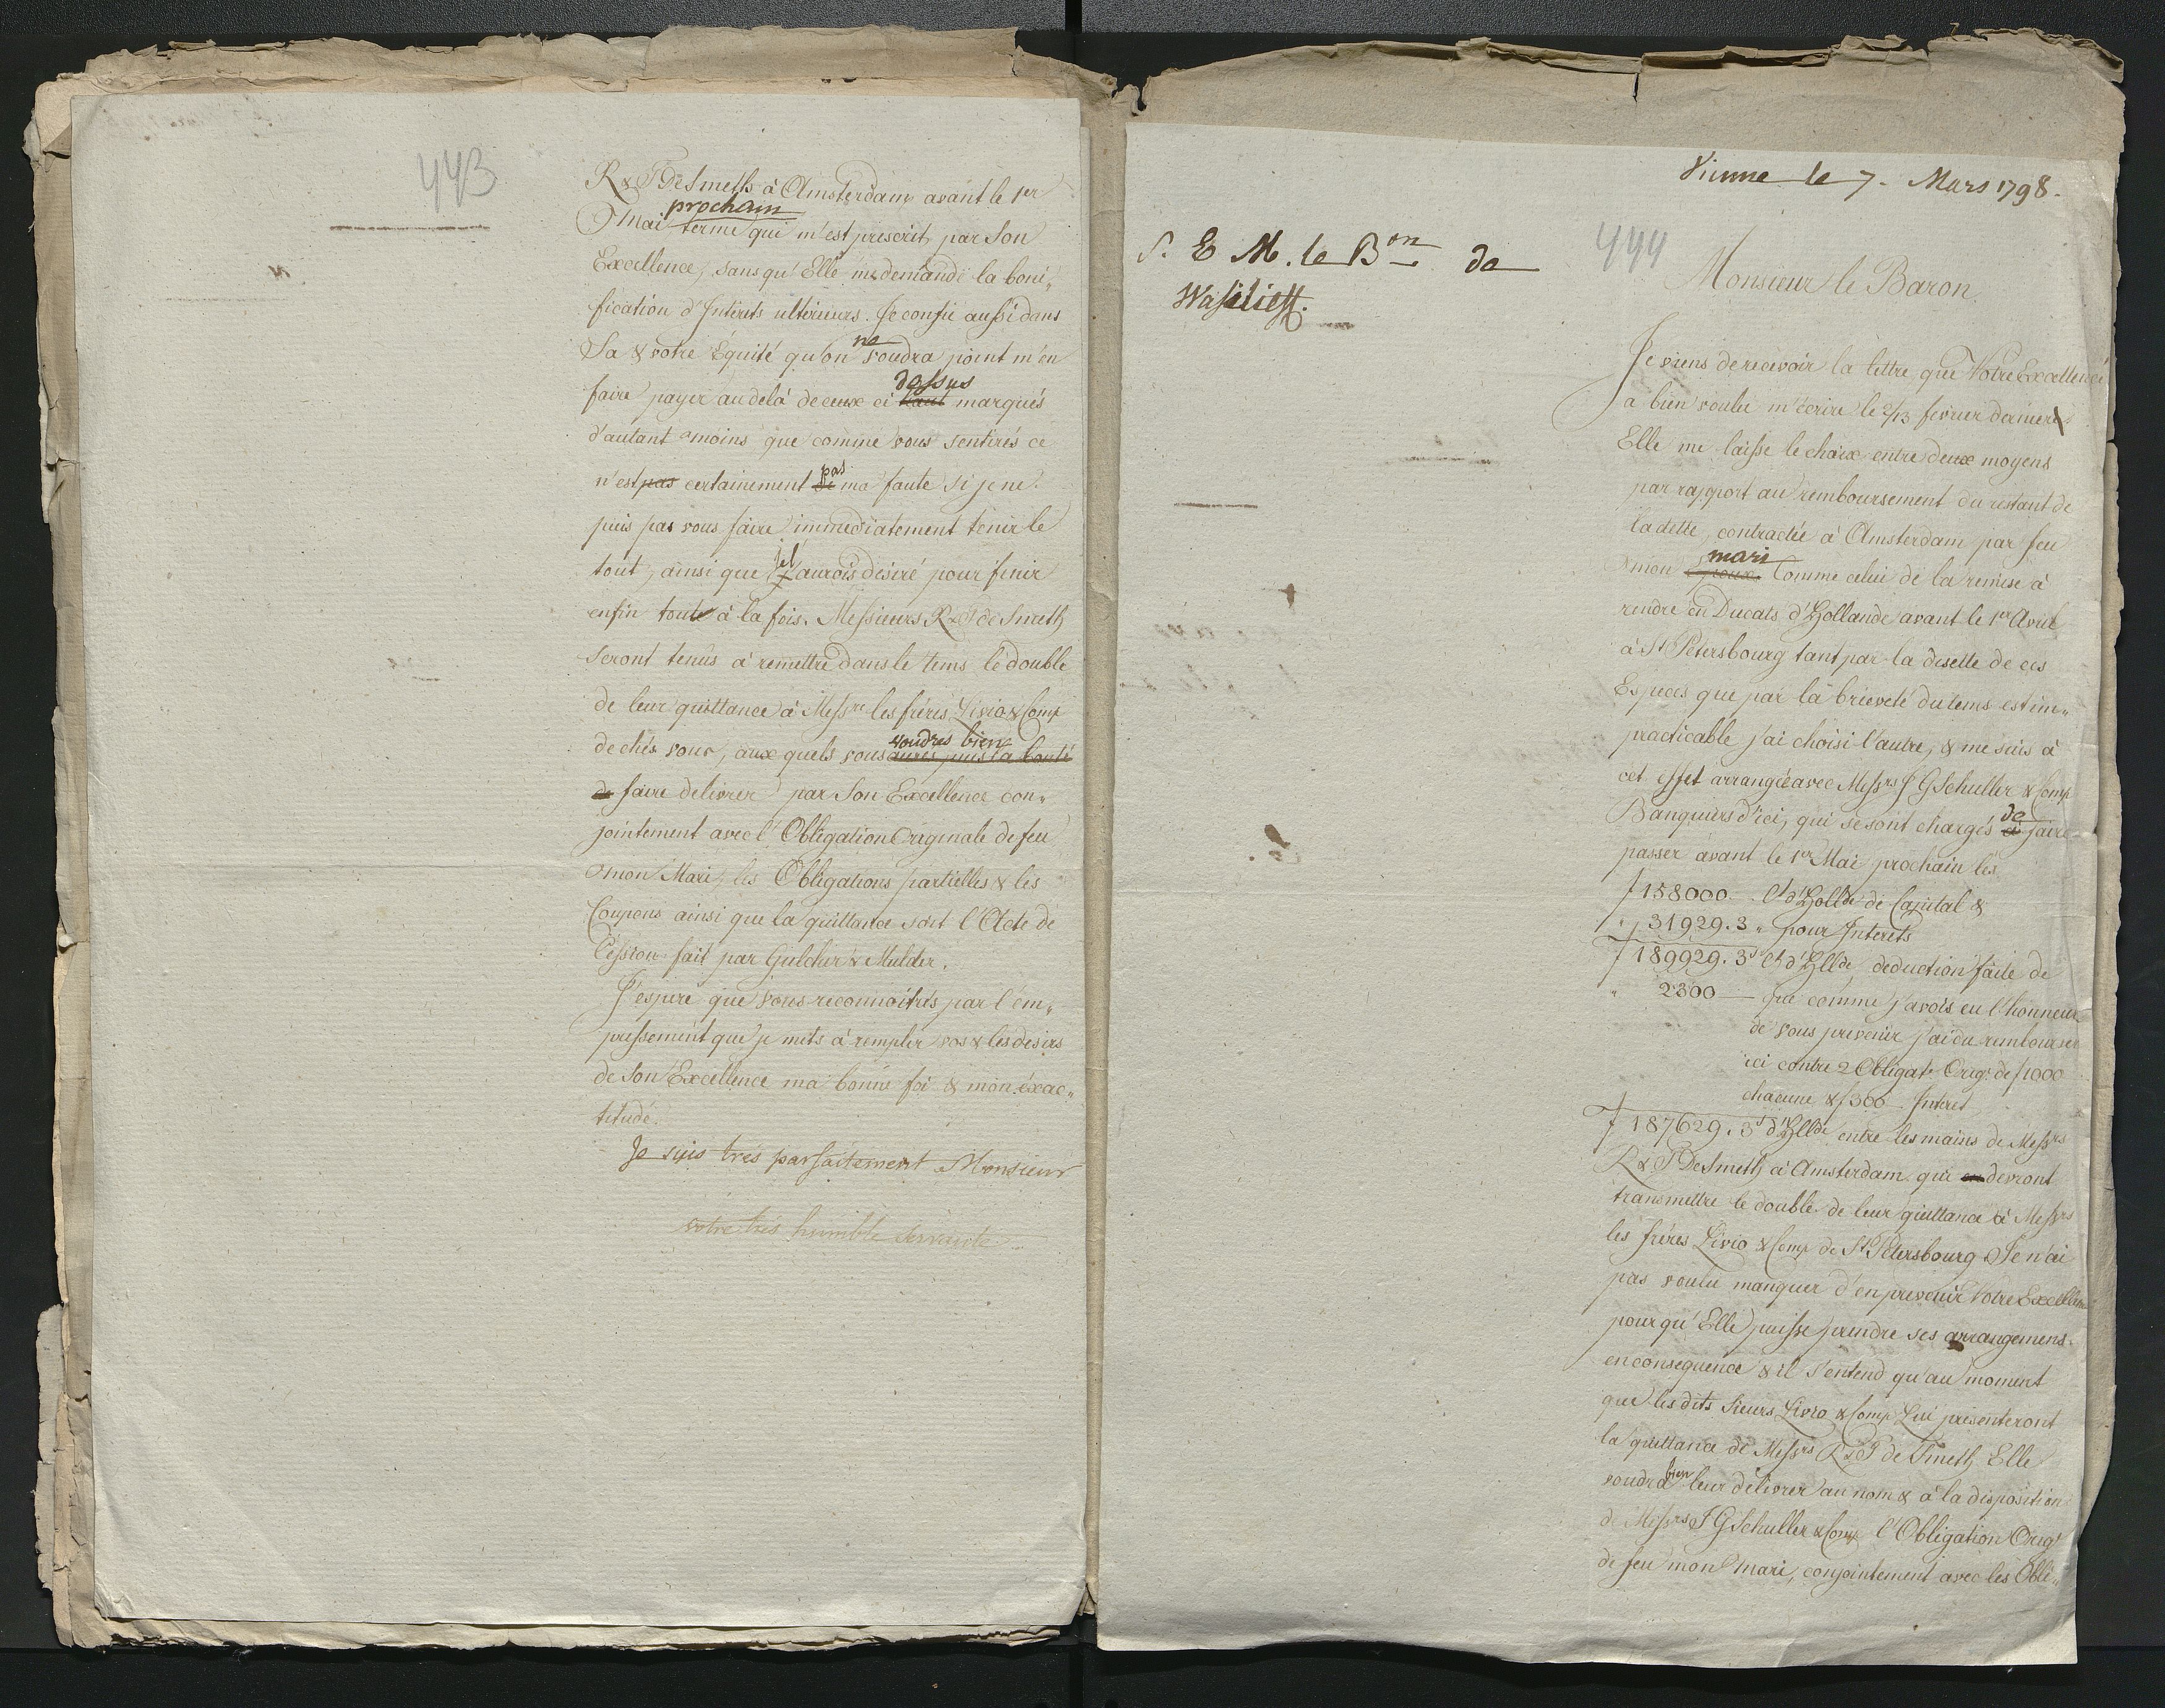 443
R & T DeSmeth à Amsterdam avant le 1er
Mai prochain terme qui m'est prescrit par Son
Excellence, sans qu'Elle me demande la boni„
fication d'Interets ulterieurs. Je confie aussi dans
Sa & votre Équité qu'on ne voudra point m'en
faire payer au delà de ceux ci haut dessus marqués
d'autant moins que comme vous sentirés ce
n'est pas certainement de pas ma faute si je ne
puis pas vous faire immediatement tenir le
tout, ainsi que je l'aurois desiré pour finir
enfin toute à la fois. Messieurs R & T de Smeth
seront tenus à remettre dans le tems le double
de leur quittance à Messrs les fréres Livio & Comp
de chés vous, aux quels vous aurés puis la bonté voudres bien
de faire delivrer par Son Excellence con„
jointement avec l'Obligation Originale de feu
mon Mari, les Obligations partielles & les
Coupons ainsi que la quittance soit l'Acte de
Cession fait par Gulcher & Mulder.
J'espere que vous reconnoitrés par l'em„
pressement que je mets à remplir vos & les desirs
de Son Excellence ma bonne foi & mon éxac„
titude.
Je suis trés parfaitement Monsieur
votre trés humble servante
Vienne le 7. Mars 1798.
444
S. E. M. le Bon de
Wasilieff.
Monsieur le Baron
Je viens de recevoir la lettre que Votre Excellence
a bien voulu m'écrire le 2/13 fevrier dernier
Elle me laisse le choix entre deux moyens
par rapport au remboursement du restant de
la dette, contractée à Amsterdam par feu
mon Epoux mari. Comme celui de la remise à
rendre en Ducats d'Hollande avant le 1er Avril
à St Pétersbourg tant par la disette de ces
Especes que par la brieveté du tems est im„
practicable j'ai choisi l'autre, & me suis à
cet effet arrangée avec Messrs J G Schuller & Comp
Banquiers d'ici, qui se sont chargés à de faire
passer avant le 1er Mai prochain les
f 158000 – Ct d'Hollde de Capital &
„ 31929.3 „ pour Interets
f 189929.3 s Ct d'Hllde, deduction faite de
„ 2300 — que comme j'avois eu l'honneur
de vous prevenir j'ai du rembourser
ici contre 2 Obligat. Orig. de f 1000
chacune & f 300 Interet
f 187629.3 s d'Hllde entre les mains de Messrs
R & T DeSmeth à Amsterdam qui en devront
transmettre le double de leur quittance à Messrs
les fréres Livio & Comp de St Pétersbourg. Je n'ai
pas voulu manquer d'en prevenir Votre Excellence
pour qu'Elle puisse prendre ses arrangemens
en consequence & il s'entend qu'au moment
que les dits Sieurs Livio & Comp Lui présenteront
la quittance de Messrs R & T de Smeth Elle
voudra bien leur delivrer au nom & à la disposition
de Messrs J G Schuller & Comp l'Obligation Origl
de feu mon mari, conjointement avec les Obli„